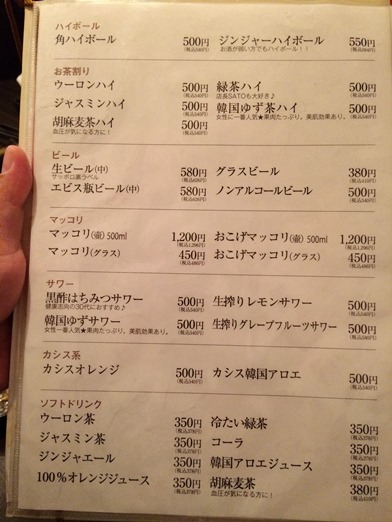 ハイボール
角ハイボール 500円 (税込540円) ジンジャーハイボール 550円
お酒が弱い方でもハイボール！！
お茶割り
ウーロンハイ 500円 (税込540円) 緑茶ハイ 500円 (税込540円)
店長SATOも大好き♪
ジャスミンハイ 500円 (税込540円) 韓国ゆず茶ハイ 500円 (税込540円)
女性に一番人気★果肉たっぷり。美肌効果あり。
胡麻麦茶ハイ 500円 (税込540円)
血圧が気になる方に！
ビール
生ビール(中) 580円 (税込626円) グラスビール 380円 (税込410円)
サッポロ黒ラベル
エビス瓶ビール(中) 580円 (税込626円) ノンアルコールビール 500円 (税込540円)
マッコリ
マッコリ(壷) 500ml 1,200円 (税込1,296円) おこげマッコリ(壷) 500ml 1,200円 (税込1,296円)
マッコリ(グラス) 450円 (税込486円) おこげマッコリ(グラス) 450円 (税込486円)
サワー
黒酢はちみつサワー 500円 (税込540円) 生搾りレモンサワー 500円 (税込540円)
健康志向の30代におすすめ♪
韓国ゆずサワー 500円 (税込540円) 生搾りグレープフルーツサワー 500円 (税込540円)
女性一番人気★果肉たっぷり。美肌効果あり。
カシス系
カシスオレンジ 500円 (税込540円) カシス韓国アロエ 500円 (税込540円)
ソフトドリンク
ウーロン茶 350円 (税込378円) 冷たい緑茶 350円 (税込378円)
ジャスミン茶 350円 (税込378円) コーラ 350円 (税込378円)
ジンジャエール 350円 (税込378円) 韓国アロエジュース 350円 (税込378円)
100%オレンジジュース 350円 (税込378円) 胡麻麦茶 380円 (税込410円)
血圧が気になる方に！